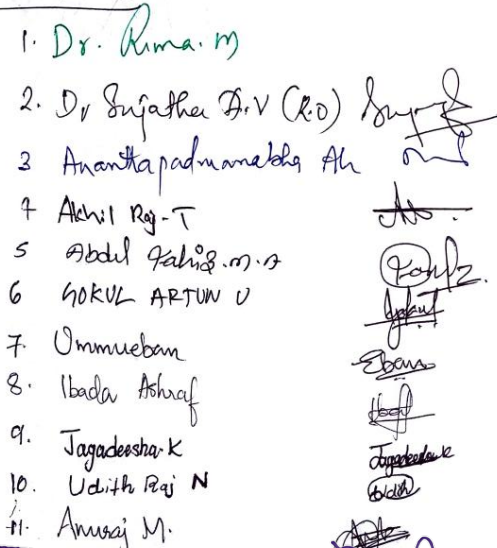 1. Dr. Rima. M
2. Dr Sujatha A.V (R.O)
3 Ananthapadmanabha Ah
4 Akhil Raj-T
5 Abdul .M.A
6 GOKUL ARJUN U
7. Ummueban Eban
8. Ibada Ashraf
9. Jagadeesha.K Jagadeesha K
10. Udith Raj N Udith
11. Anuraj M.